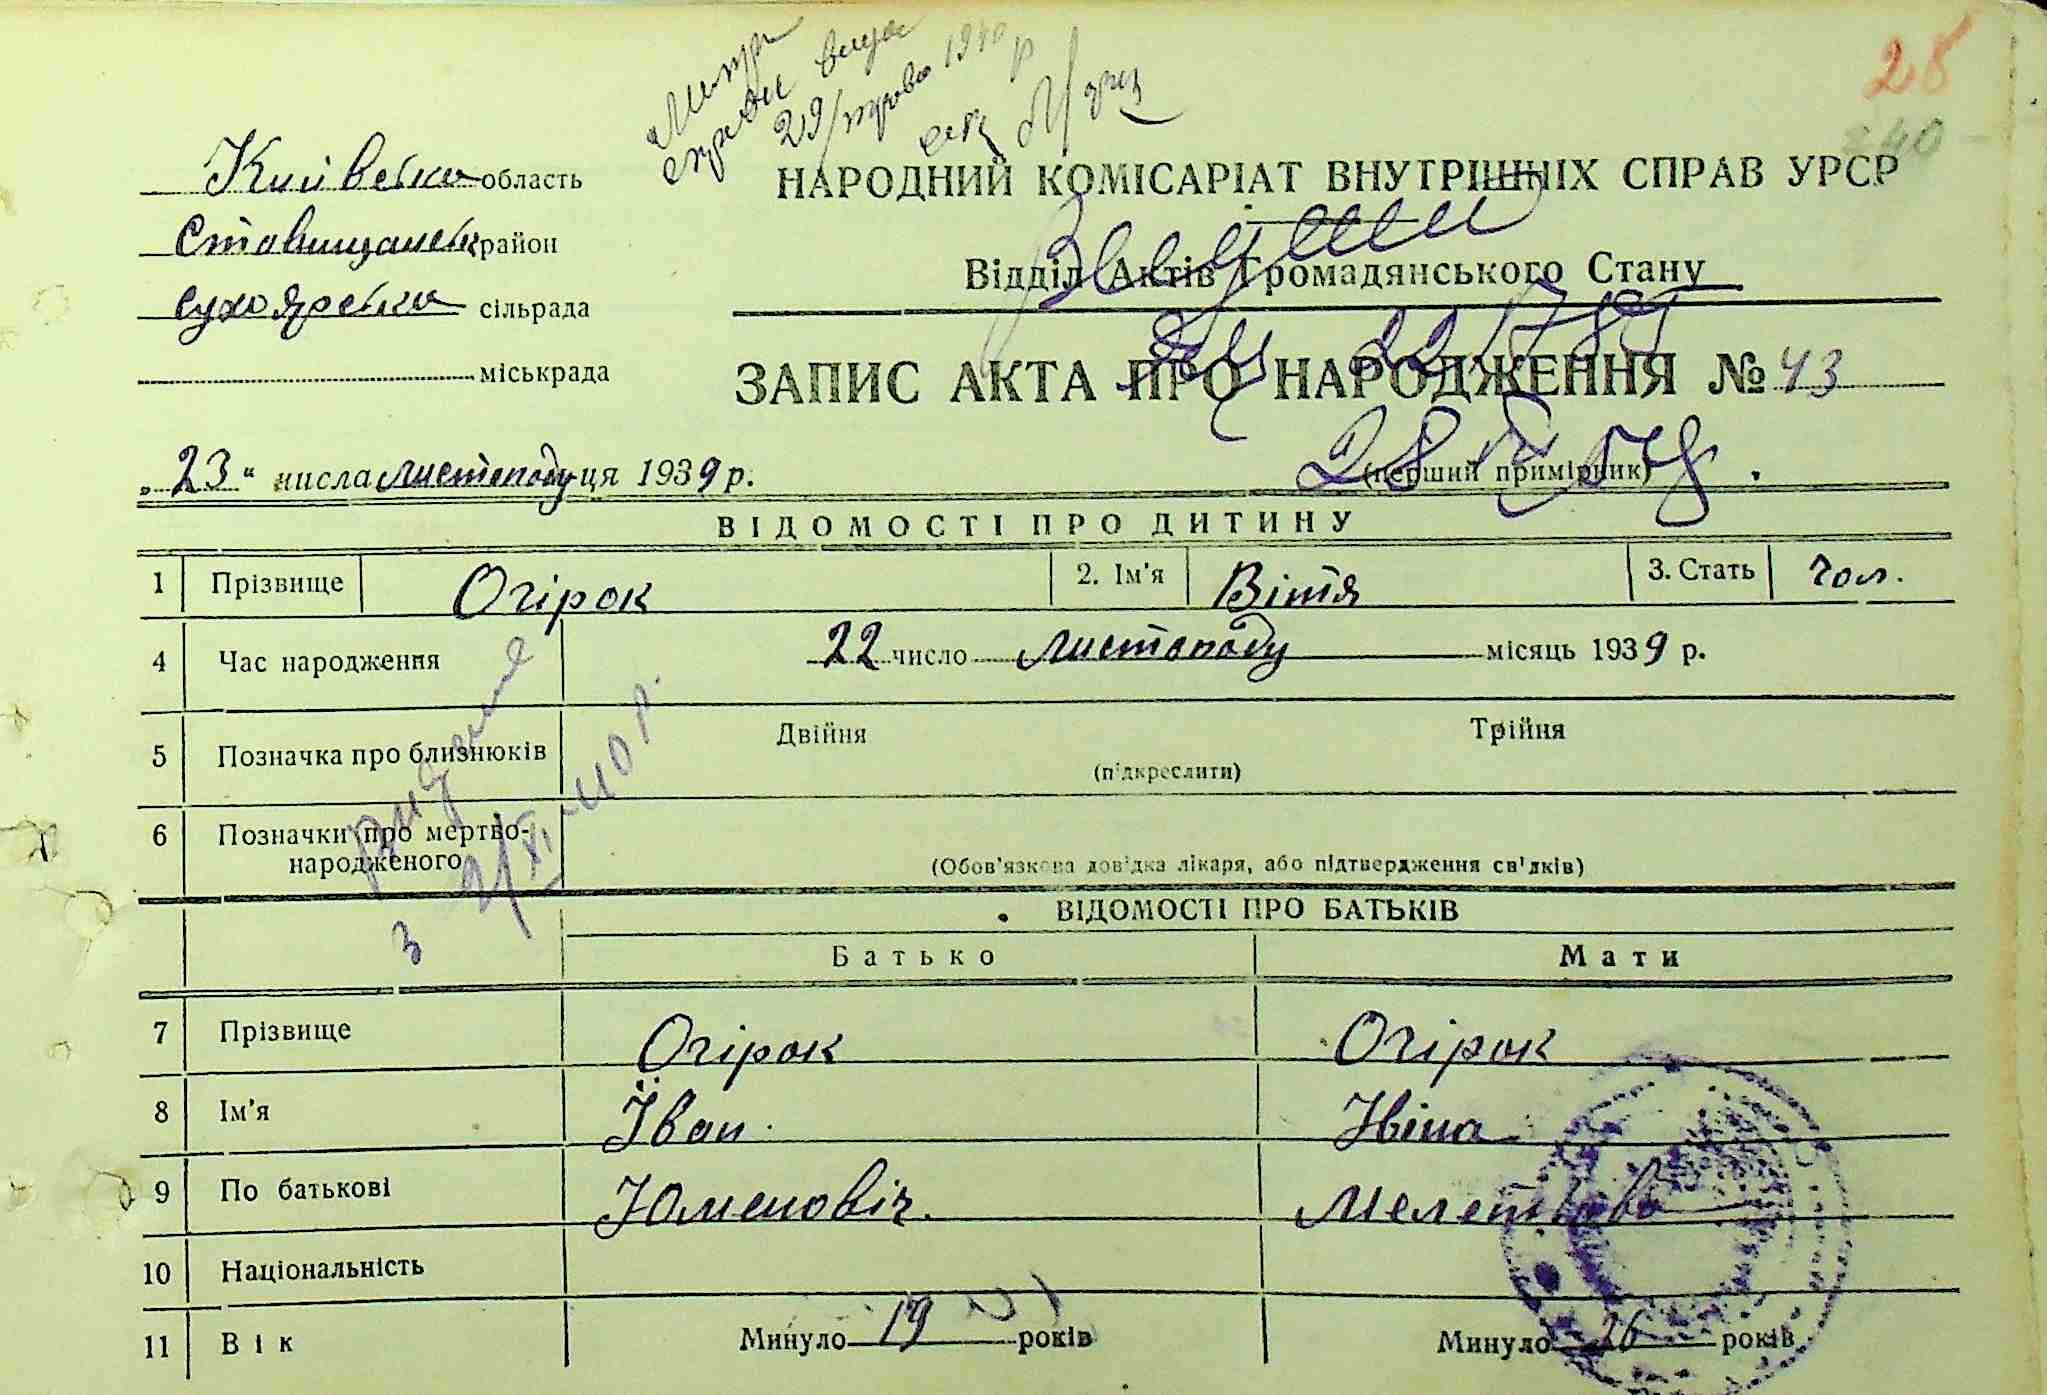 28
240
Київська область
Ставищанськ район
Сухоярська сільрада
міськрада
НАРОДНИЙ КОМІСАРІАТ ВНУТРІШНІХ СПРАВ УРСР
Відділ Актів Громадянського Стану
ЗАПИС АКТА ПРО НАРОДЖЕННЯ № 43
„23" числа листопаду ця 1939 р.
(перший примірник)
ВІДОМОСТІ ПРО ДИТИНУ
1 Прізвище Огірок 2. Ім'я Вітя 3. Стать чол.
4 Час народження 22 число листопаду місяць 1939 р.
5 Позначка про близнюків Двійня Трійня
(підкреслити)
6 Позначки про мертво-
народженого
(Обов'язкова довідка лікаря, або підтвердження свідків)
ВІДОМОСТІ ПРО БАТЬКІВ
Батько Мати
7 Прізвище Огірок Огірок
8 Ім'я Їван Ніна
9 По батькові Юменовіч
10 Національність
11 Вік Минуло 19 років Минуло 26 років